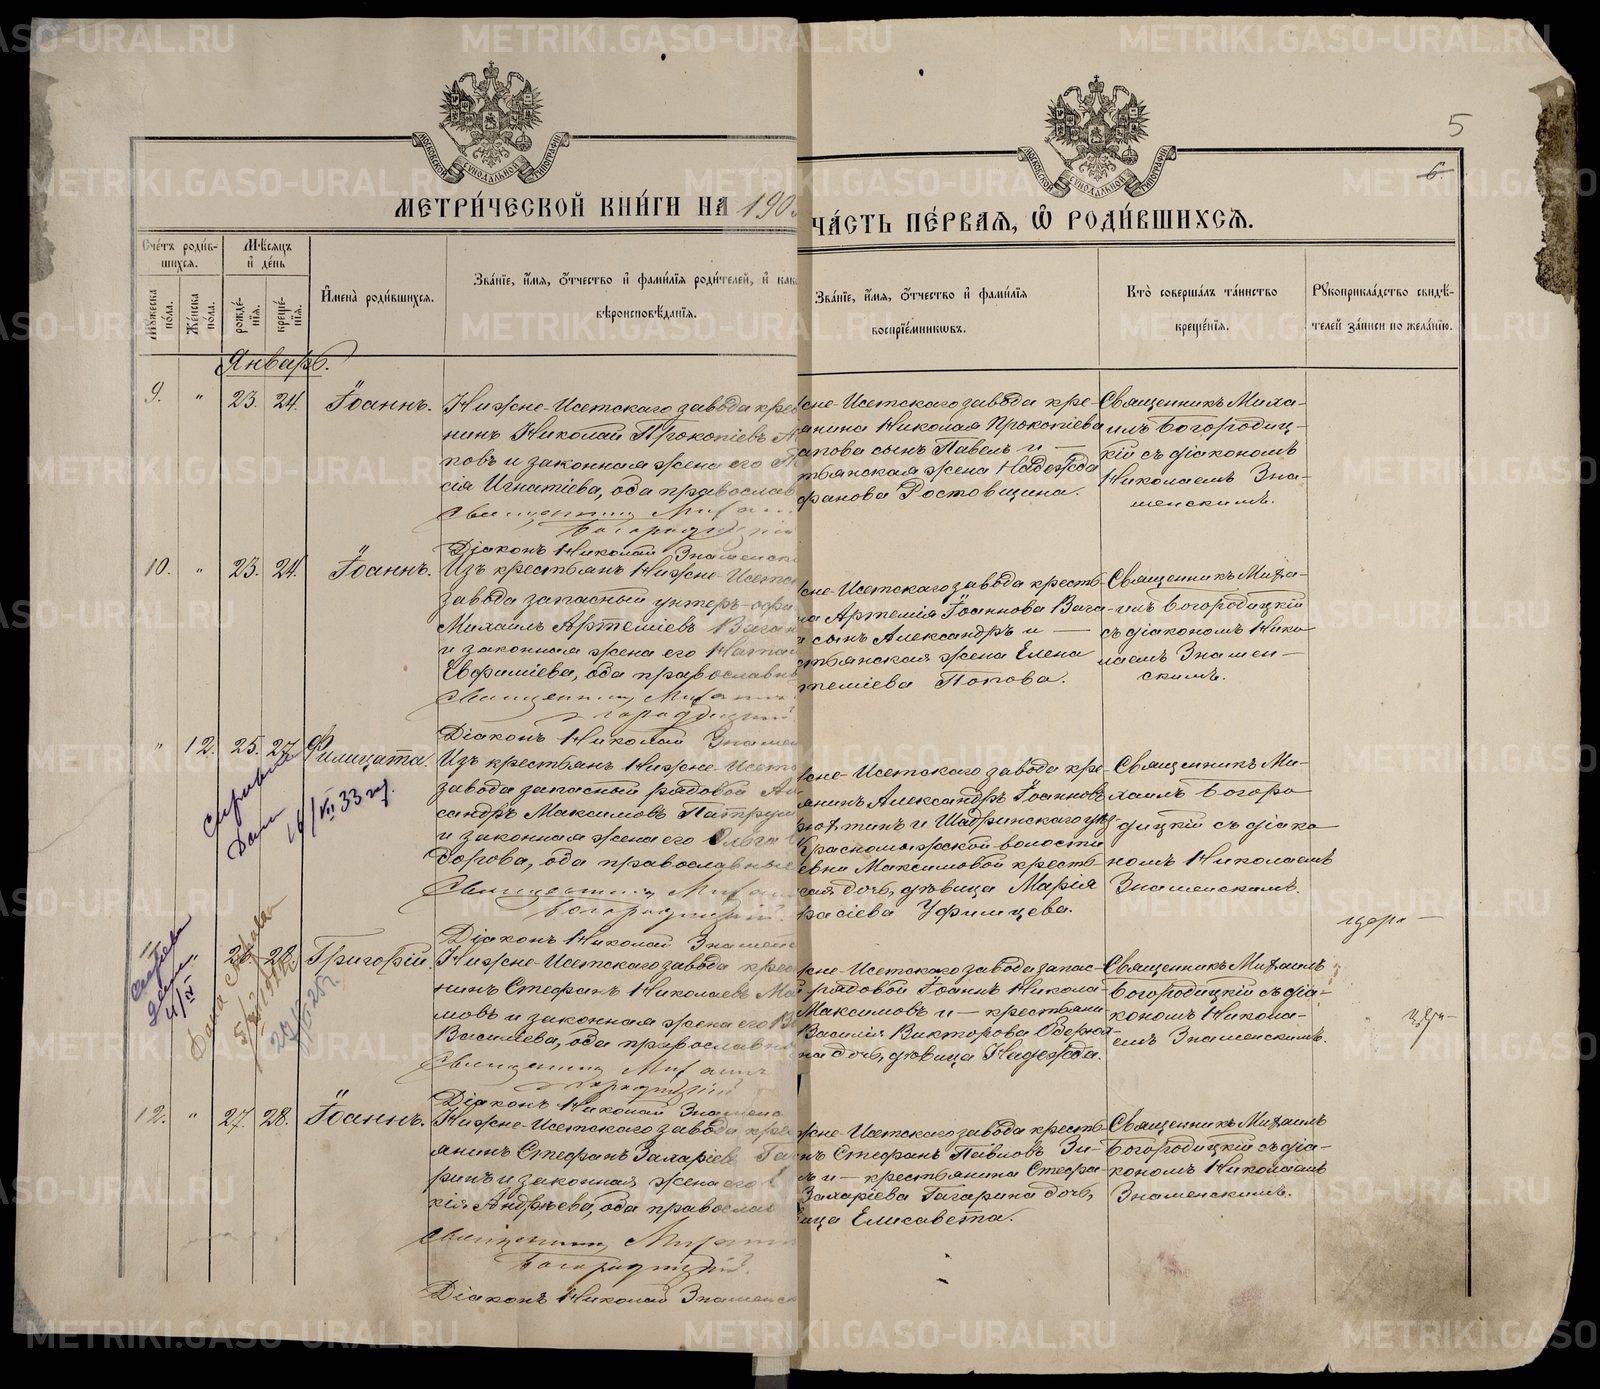 МЕТРИ́ЧЕСКОЙ КНИ́ГИ НА 190
ЧА́СТЬ ПЕ́РВАЯ, Ѡ РОДИ́ВШИХСѦ.
5
6.
МОСКОВСКОЙ СѴНОДАЛЬНОЙ ТИПОГРАФІИ
МОСКОВСКОЙ СѴНОДАЛЬНОЙ ТИПОГРАФІИ
Сче́тъ роди́в-
шихсѧ.
Мѣ́сѧцъ
и҆ де́нь
Мꙋ́жеска по́ла.
Же́нска по́ла.
рожде́-
нїѧ.
креще́-
нїѧ.
И҆мена̀ роди́вшихсѧ.
Зва́нїе, и҆́мѧ, ѻ҆́тчество и҆ фами́лїѧ роди́телей, и҆ как
вѣроисповѣ́данїѧ.
Зва́нїе, и҆́мѧ, ѻ҆́тчество и҆ фами́лїѧ
воспрїе́мниковъ.
Кто̀ соверша́лъ та́инство
креще́нїѧ.
Рꙋкоприкла́дство свидѣ́-
телей за́писи по жела́нїю.
Январь.
9. " 23. 24. Іоаннъ.
Нижне-Исетскаго завода крес
нинъ Николай Прокопіевъ
повъ и законная жена его
сія Игнатіева, оба православ
Священникъ Миха
Богородицкій
Діаконъ Николай Знаменск
сне-Исетскаго завода кре-
янина Николая Прокопіева
апова сынъ Павелъ и —
тьянская жена Надежда
фанова Ростовщина.
Священникъ Миха-
илъ Богородиц-
кій съ діакономъ
Николаемъ Зна-
менскимъ.
10. " 23. 24. Іоаннъ.
Изъ крестьянъ Нижне-Исетс
завода запасный унтеръ-офи
Михаилъ Артеміевъ Ваган
и законная жена его Натал
Евфиміева, оба православн
Священникъ Михаилъ
Богородицкій.
Діаконъ Николай Знамен
сне-Исетскаго завода кресть-
на Артемія Іоаннова Вага-
а сынъ Александръ и —
стьянская жена Елена
теміева Попова.
Священникъ Миха-
илъ Богородицкій
съ діакономъ Нико-
лаемъ Знамен-
скимъ.
" 12. 25. 27. Филицата.
Изъ крестьянъ Нижне-Исетс
завода запасный рядовой Ал
сандръ Максимовъ Патруш
и законная жена его Ольга
дорова, оба православные
Священникъ Михаи
Богородицкій.
Діаконъ Николай Знамен
сне-Исетскаго завода кре-
янинъ Александръ Іоаннов
тинъ и Шадринскаго уѣз-
Красномыской волости
евни Максимовой кресть-
ская дочь, дѣвица Марія
расіева Уфимцева.
Священникъ Ми-
хаилъ Богоро
дицкій съ діако
номъ Николаемъ
Знаменскимъ.
справка
дана
16/VII 33 г.
11 " 26. 28. Григорій.
Нижне-Исетскаго завода крес
нинъ Стефанъ Николаевъ Ма
мовъ и законная жена его
Василіева, оба православн
Священникъ Михаилъ
Богородицкій
Діаконъ Николай Знамен
сне-Исетскаго завода запас-
рядовой Іоаннъ Никола-
Максимовъ и — крестьяни-
Василія Викторова
на дочь, дѣвица Надежда.
Священникъ Михаилъ
Богородицкій съ діа-
кономъ Никола-
емъ Знаменскимъ.
Дана справка
12. " 27. 28. Іоаннъ.
Нижне-Исетскаго завода крес
янинъ Стефанъ Захаріевъ Га
ринъ и законная жена его
кія Андреева, оба православ
Священникъ Михаилъ
Богородицкій.
Діаконъ Николай Знаменск
сне-Исетскаго завода кресть-
нъ Стефанъ Павловъ Зи-
ъ и — крестьянина Стефа-
Захаріева Гагарина дочь,
ица Елисавета.
Священникъ Михаилъ
Богородицкій съ діа-
кономъ Николаемъ
Знаменскимъ.
METRIKI.GASO-URAL.RU